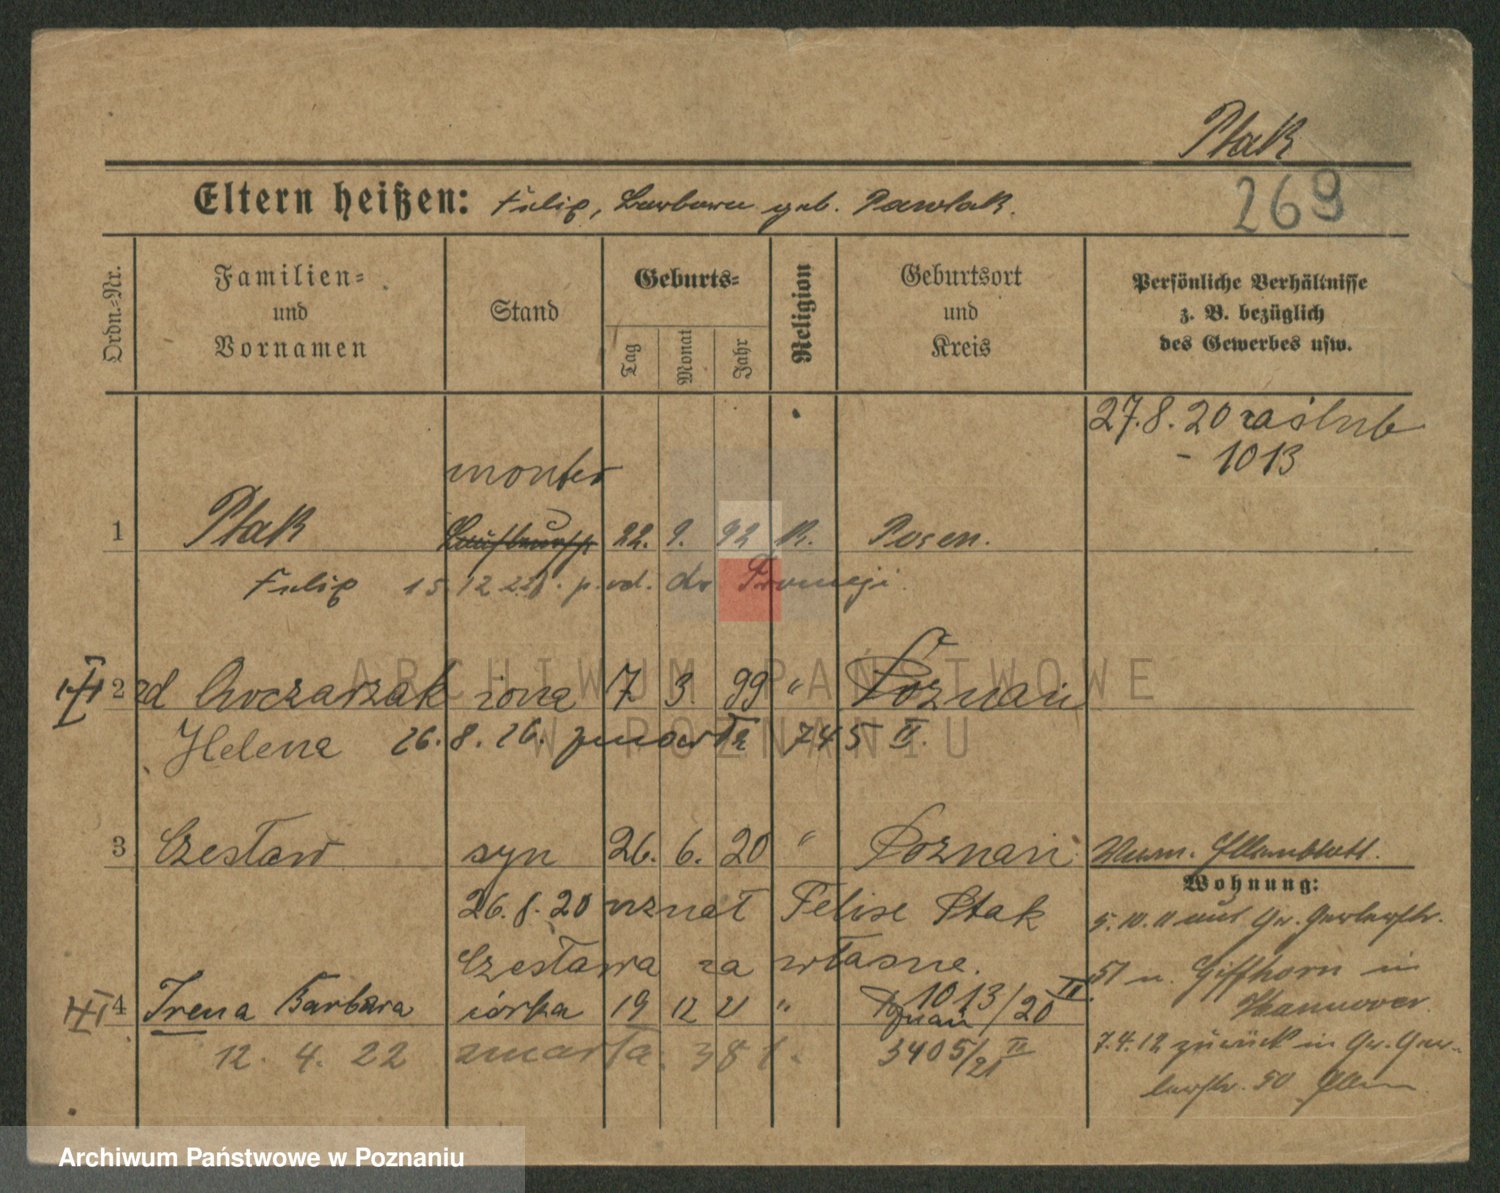 Ptak
269
Eltern heißen: Felix, Barbara geb. Pawlak.
Ordn.-Nr.
Familien-
und
Vornamen
Stand
Geburts-
Tag
Monat
Jahr
Religion
Geburtsort
und
Kreis
Persönliche Verhältnisse
z. B. bezüglich
des Gewerbes usw.
27.8.20 zaślub
- 1013
monter
1 Ptak Laufbursche 22. 9. 92 K. Posen.
Felix 15.12.22 do Francji
2 zd Owczarzak żona 7 3. 99 " Poznań
Helena 26.8.26. zmarła 745 II.
3 Czesław syn 26. 6. 20 " Poznań
26.8.20 uznał Felix Ptak
Czesława za własne.
1013/20 II.
4 Irena Barbara córka 19 12 21 " Poznań
12. 4. 22 zmarła. 3405/21 II
Wohnung:
5.10.11 aus Gr. Gerberstr.
51 n. Giffhorn in
Hannover.
7.4.12 zurück in Gr. Ger-
berstr. 50
ARCHIWUM PAŃSTWOWE
W POZNANIU
Archiwum Państwowe w Poznaniu